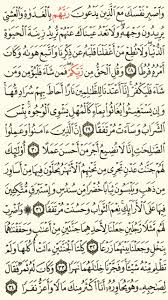 وَٱصۡبِرۡ نَفۡسَكَ مَعَ ٱلَّذِينَ يَدۡعُونَ رَبَّهُم بِٱلۡغَدَوٰةِ وَٱلۡعَشِيِّ
يُرِيدُونَ وَجۡهَهُۥۖ وَلَا تَعۡدُ عَيۡنَاكَ عَنۡهُمۡ تُرِيدُ زِينَةَ ٱلۡحَيَوٰةِ
ٱلدُّنۡيَاۖ وَلَا تُطِعۡ مَنۡ أَغۡفَلۡنَا قَلۡبَهُۥ عَن ذِكۡرِنَا وَٱتَّبَعَ هَوَىٰهُ وَكَانَ
أَمۡرُهُۥ فُرُطٗا ٢٨ وَقُلِ ٱلۡحَقُّ مِن رَّبِّكُمۡۖ فَمَن شَآءَ فَلۡيُؤۡمِن وَمَن
شَآءَ فَلۡيَكۡفُرۡۚ إِنَّآ أَعۡتَدۡنَا لِلظَّٰلِمِينَ نَارًا أَحَاطَ بِهِمۡ سُرَادِقُهَاۚ
وَإِن يَسۡتَغِيثُواْ يُغَاثُواْ بِمَآءٖ كَٱلۡمُهۡلِ يَشۡوِي ٱلۡوُجُوهَۚ بِئۡسَ
ٱلشَّرَابُ وَسَآءَتۡ مُرۡتَفَقًا ٢٩ إِنَّ ٱلَّذِينَ ءَامَنُواْ وَعَمِلُواْ
ٱلصَّٰلِحَٰتِ إِنَّا لَا نُضِيعُ أَجۡرَ مَنۡ أَحۡسَنَ عَمَلًا ٣٠ أُوْلَٰٓئِكَ
لَهُمۡ جَنَّٰتُ عَدۡنٖ تَجۡرِي مِن تَحۡتِهِمُ ٱلۡأَنۡهَٰرُ يُحَلَّوۡنَ فِيهَا مِنۡ أَسَاوِرَ
مِن ذَهَبٖ وَيَلۡبَسُونَ ثِيَابًا خُضۡرٗا مِّن سُندُسٖ وَإِسۡتَبۡرَقٖ مُّتَّكِـِٔينَ
فِيهَا عَلَى ٱلۡأَرَآئِكِۚ نِعۡمَ ٱلثَّوَابُ وَحَسُنَتۡ مُرۡتَفَقٗا ٣١ وَٱضۡرِبۡ
لَهُم مَّثَلٗا رَّجُلَيۡنِ جَعَلۡنَا لِأَحَدِهِمَا جَنَّتَيۡنِ مِنۡ أَعۡنَٰبٖ وَحَفَفۡنَٰهُمَا
بِنَخۡلٖ وَجَعَلۡنَا بَيۡنَهُمَا زَرۡعٗا ٣٢ كِلۡتَا ٱلۡجَنَّتَيۡنِ ءَاتَتۡ أُكُلَهَا وَلَمۡ
تَظۡلِم مِّنۡهُ شَيۡـٔٗاۚ وَفَجَّرۡنَا خِلَٰلَهُمَا نَهَرٗا ٣٣ وَكَانَ لَهُۥ ثَمَرٞ فَقَالَ